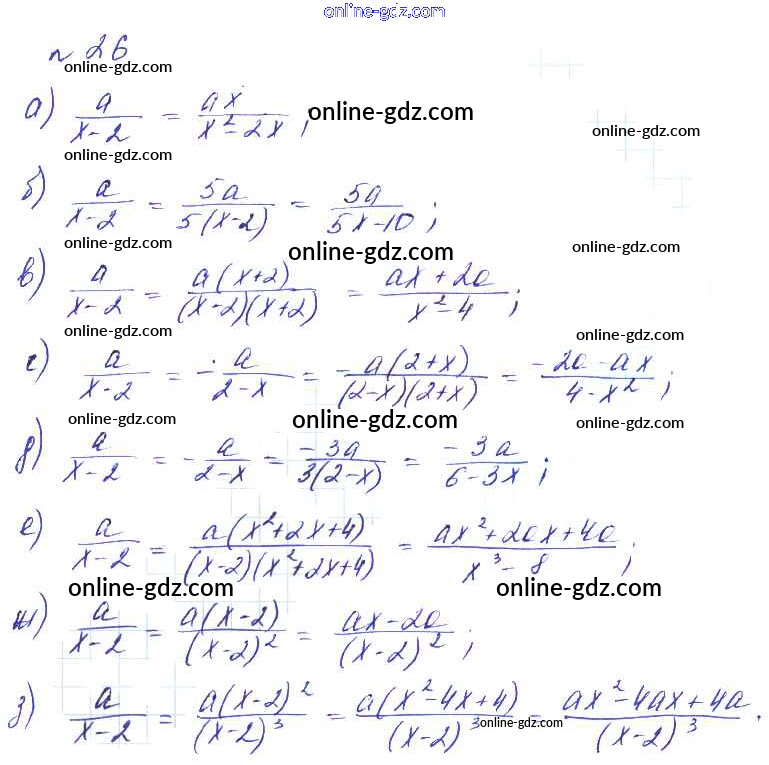 online-gdz.com
№ 26
online-gdz.com
а) a/(x-2) = ax/(x²-2x); online-gdz.com
online-gdz.com
online-gdz.com
б) a/(x-2) = 5a/(5(x-2)) = 5a/(5x-10);
online-gdz.com online-gdz.com online-gdz.com
в) a/(x-2) = a(x+2)/((x-2)(x+2)) = (ax+2a)/(x²-4);
online-gdz.com online-gdz.com
г) a/(x-2) = -a/(2-x) = -a(2+x)/((2-x)(2+x)) = (-2a-ax)/(4-x²);
online-gdz.com online-gdz.com online-gdz.com
д) a/(x-2) = -a/(2-x) = -3a/(3(2-x)) = -3a/(6-3x);
е) a/(x-2) = a(x²+2x+4)/((x-2)(x²+2x+4)) = (ax²+2ax+4a)/(x³-8);
online-gdz.com online-gdz.com
ж) a/(x-2) = a(x-2)/(x-2)² = (ax-2a)/(x-2)²;
з) a/(x-2) = a(x-2)²/(x-2)³ = a(x²-4x+4)/(x-2)³ = (ax²-4ax+4a)/(x-2)³.
online-gdz.com